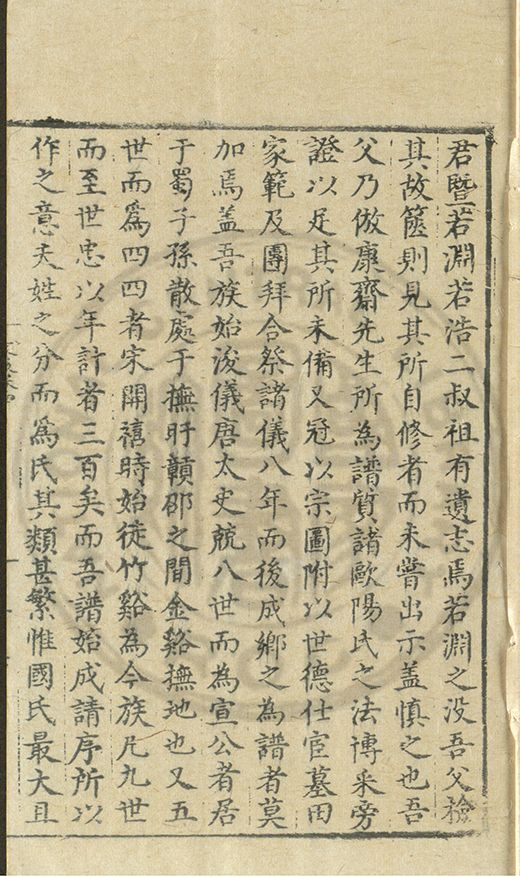 君暨若淵若浩二叔祖有遺志焉若淵之没吾父撿
其故篋則見其所自修者而未嘗出示盖慎之也吾
父乃倣康齋先生所為譜質諸歐陽氏之法博采旁
證以足其所未備又冠以宗圖附以世德仕宦墓田
家範及團拜合祭諸儀八年而後成鄉之為譜者莫
加焉盖吾族始浚儀唐太史兢八世而為宣公者居
于蜀子孫散處于撫盱贛邵之間金谿撫地也又五
世而為四四者宋開禧時始徙竹谿為今族凡九世
而至世忠以年計者三百矣而吾譜始成請序所以
作之意夫姓之分而為氏其類甚繁惟國氏最大且